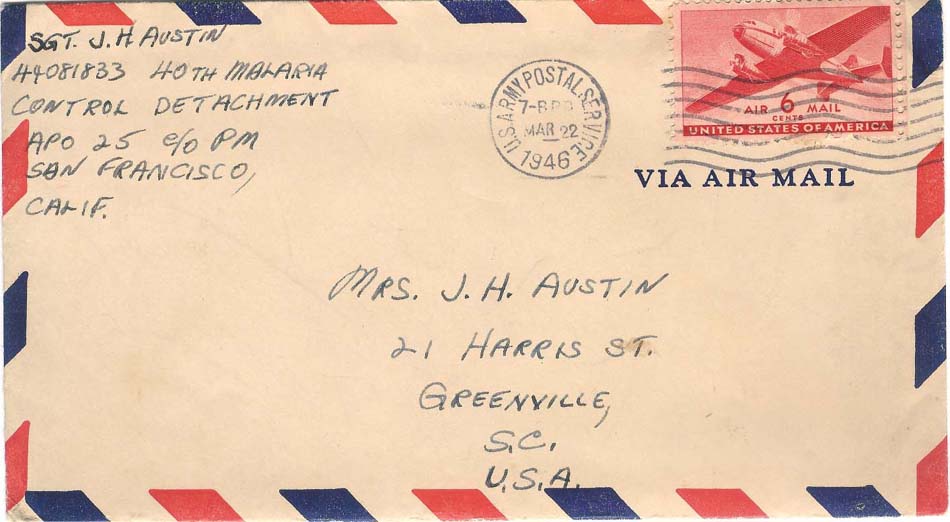 SGT. J. H. AUSTIN
44081833 40TH MALARIA
CONTROL DETACHMENT
APO 25 c/o PM
SAN FRANCISCO,
CALIF.
U.S. ARMY POSTAL SERVICE
MAR 22
1946
AIR 6 MAIL
CENTS
UNITED STATES OF AMERICA
VIA AIR MAIL
MRS. J. H. AUSTIN
21 HARRIS ST.
GREENVILLE,
S.C.
U.S.A.